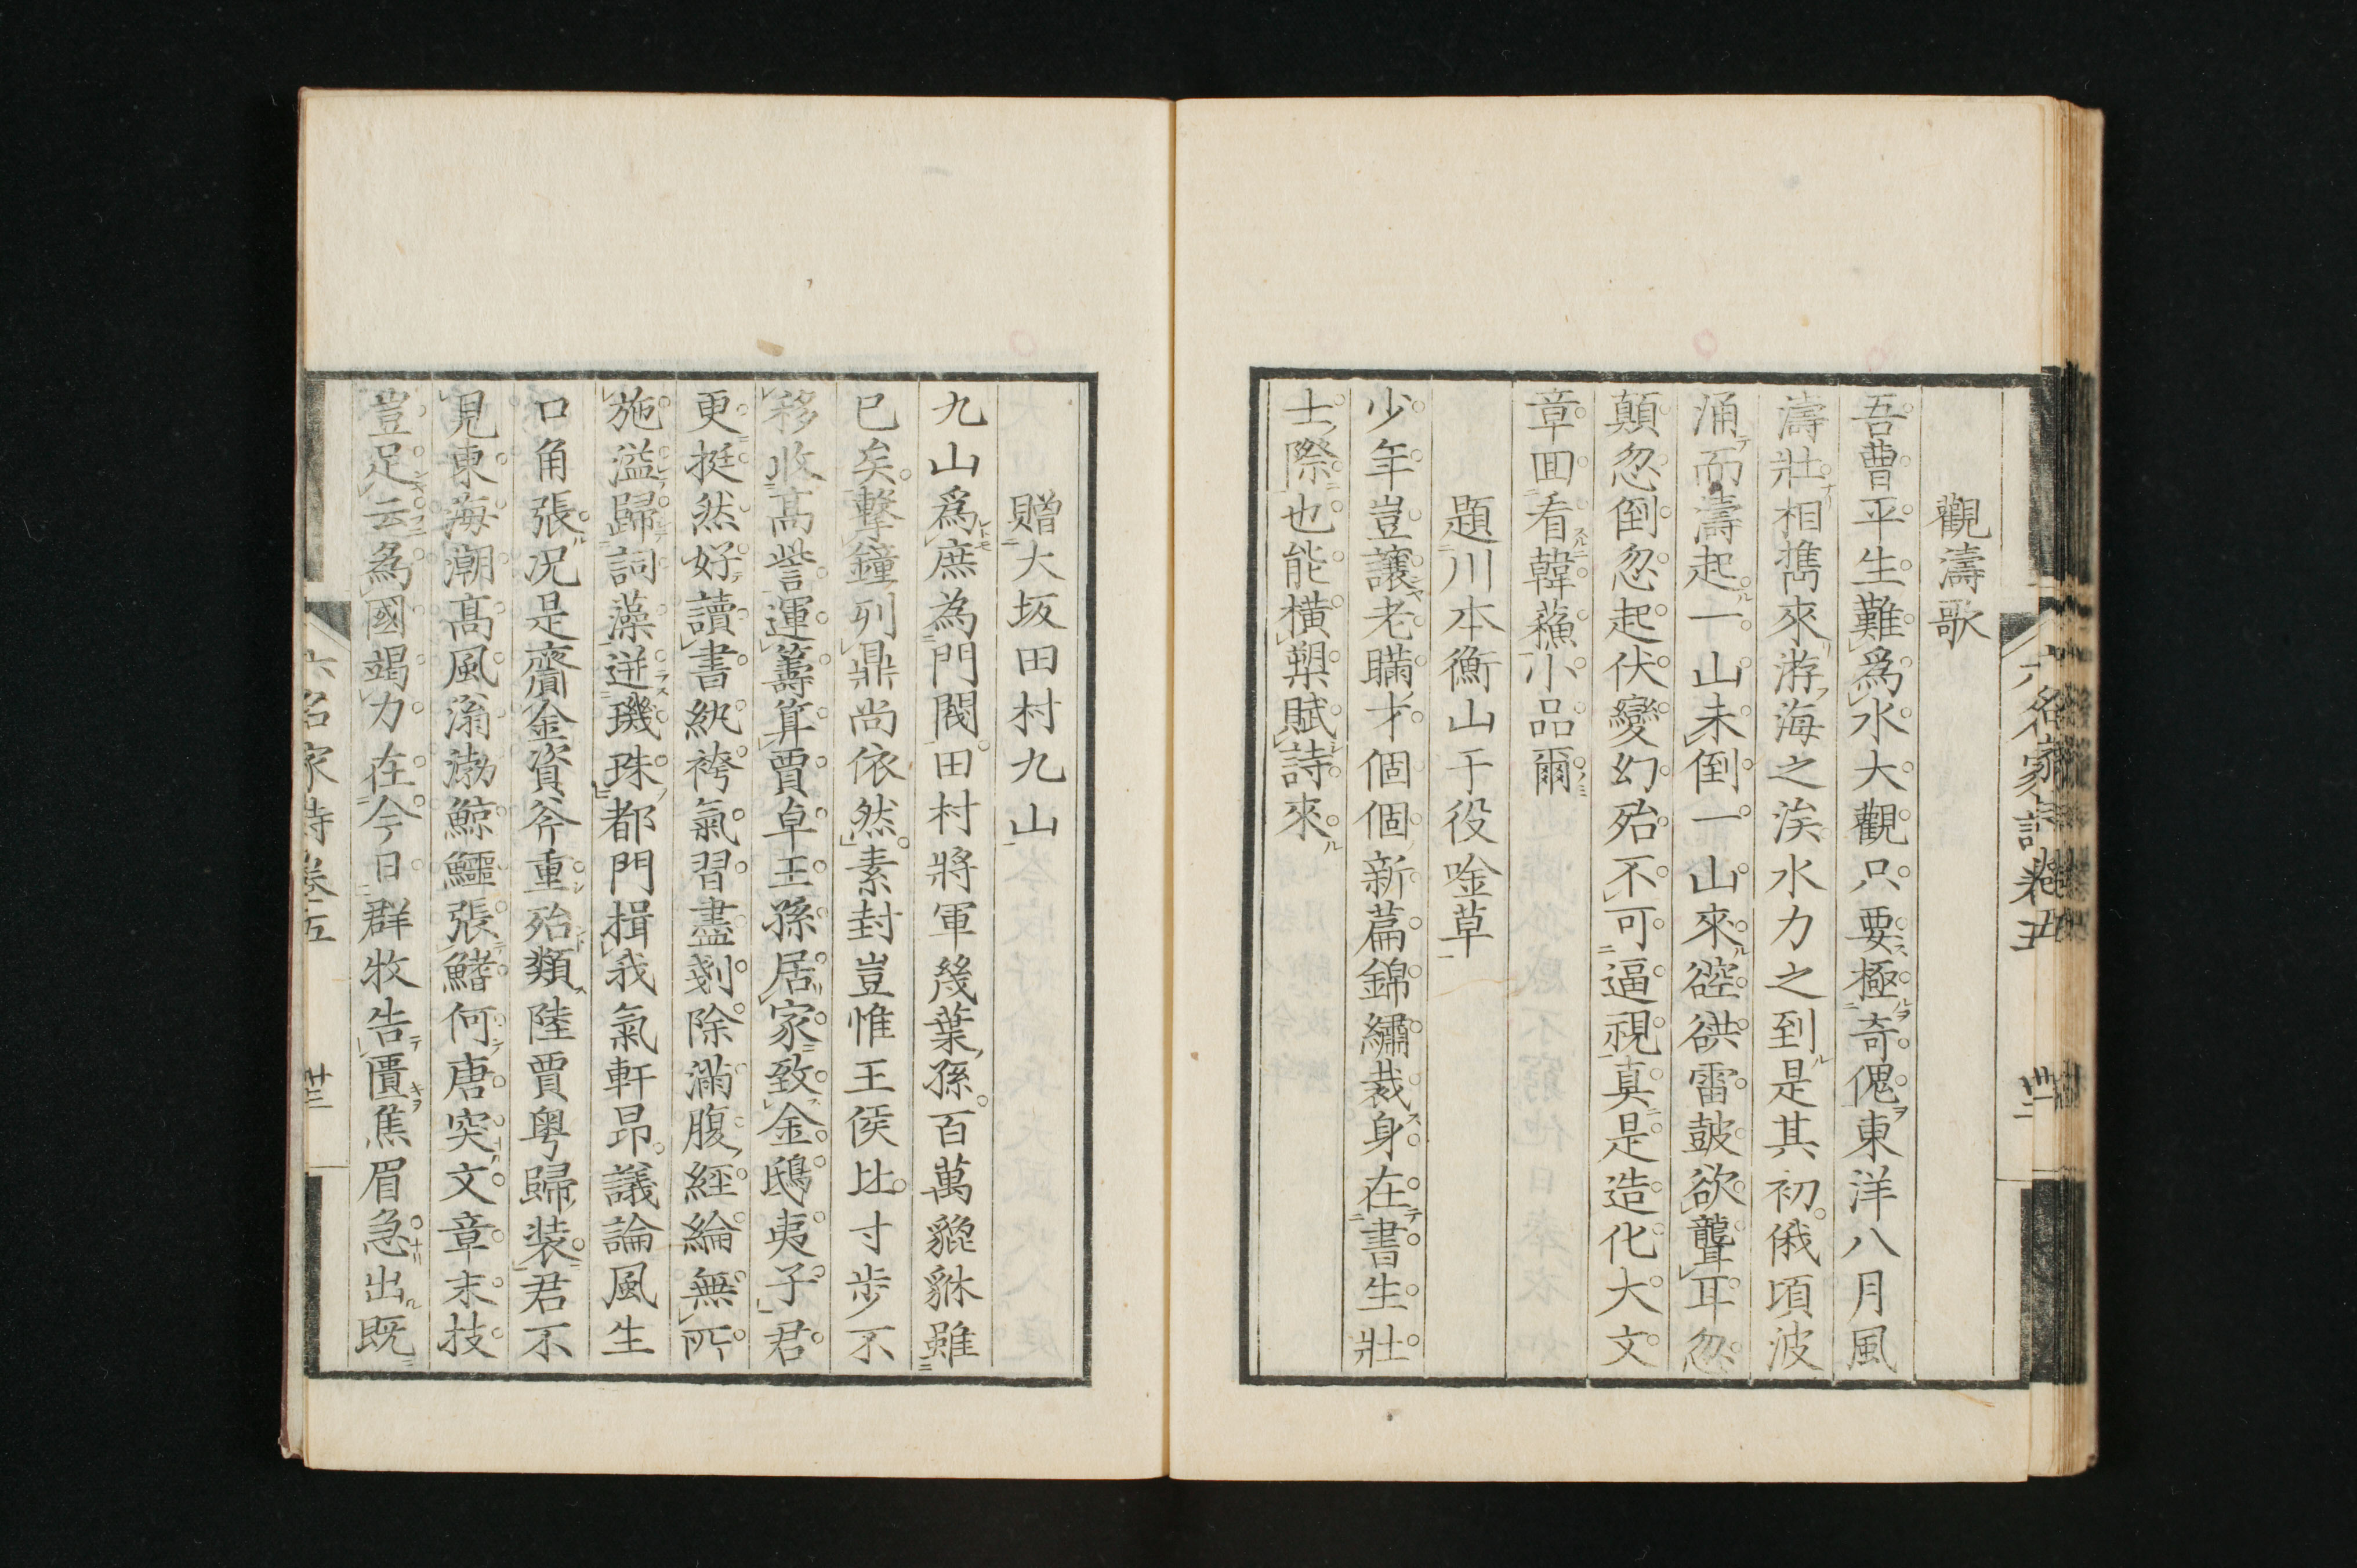 觀濤歌
吾曹平生難爲水大觀只要極奇傀東洋八月風
濤壯相携來游海之涘水力之到是其初俄頃波
涌而濤起一山未倒一山來硿谼雷鼓欲聾耳忽
顛忽倒忽起伏變幻殆不可逼視真是造化大文
章回看韓蘓小品爾
題川本衡山于役唫草
少年豈讓老瞞才個個新篇錦繡裁身在書生壯
士際也能橫槊賦詩來
贈大坂田村九山
九山爲庶為門閥田村將軍幾葉孫百萬貔貅雖
已矣擊鐘列鼎尚依然素封豈惟王侯比寸步不
移收高訾運籌算賈卓王孫居家致金鴟夷子君
更挺然好讀書紈袴氣習盡剗除滿腹經綸無所
施溢歸詞藻迸璣珠都門揖我氣軒昂議論風生
口角張况是齎金資斧重殆類陸賈粤歸装君不
見東海潮高風滃渤鯨鱷張鰭何唐突文章末技
豈足云為國竭力在今日群牧告匱焦眉急出既
六名家詩卷五